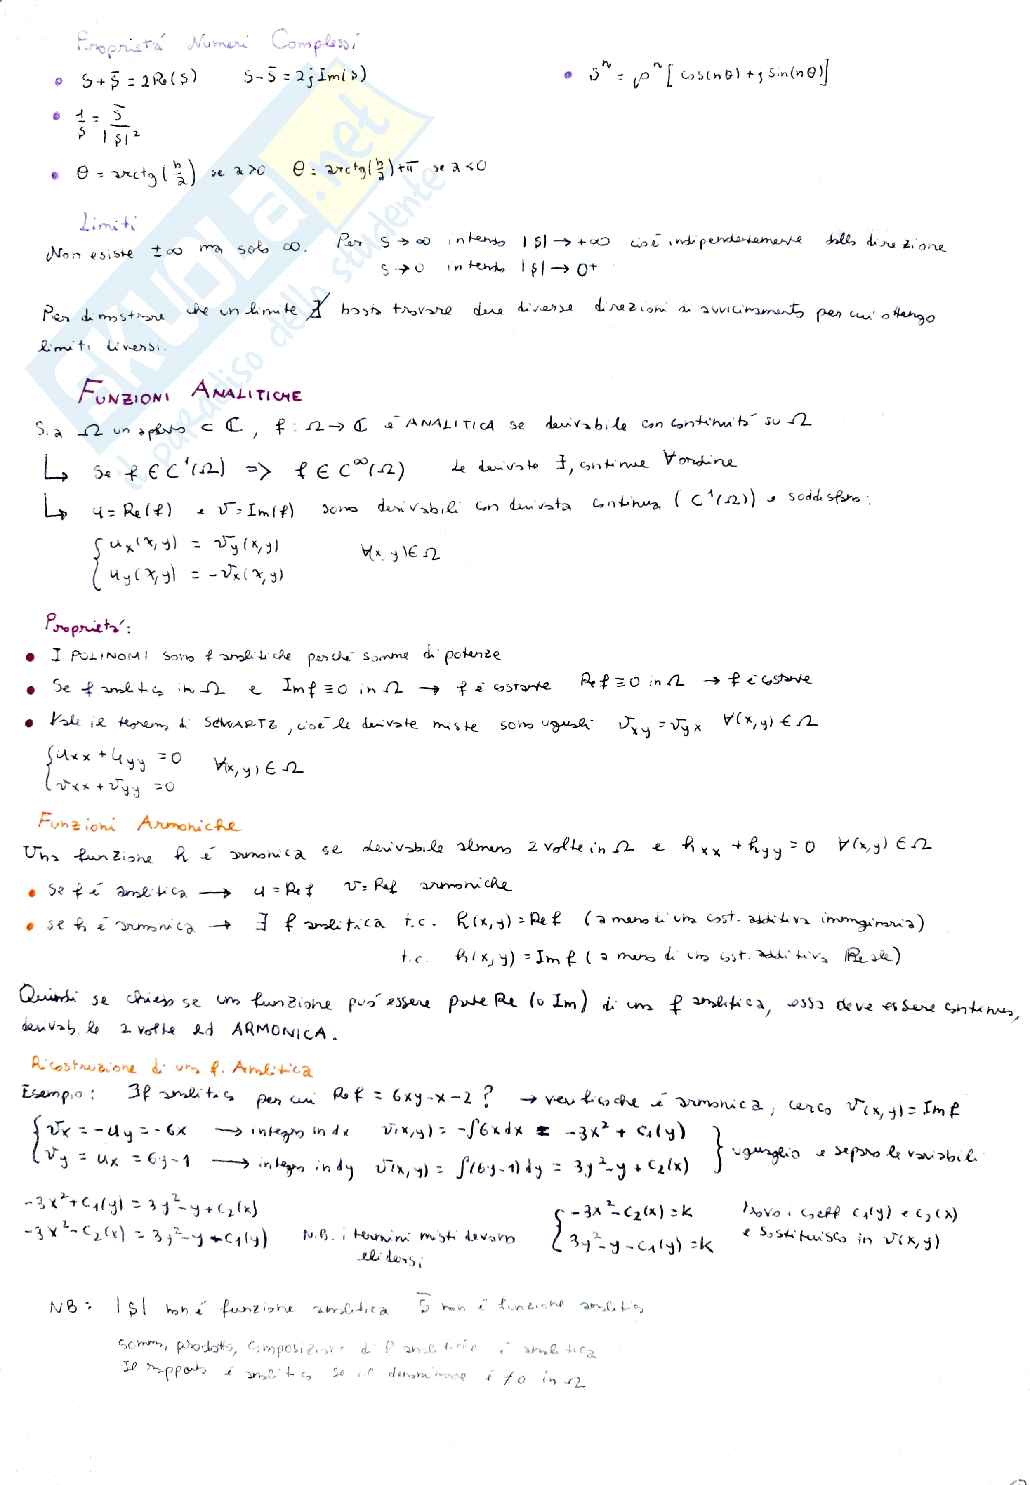 Proprietà Numeri Complessi
• S + S̄ = 2Re(S)   S - S̄ = 2j Im(s)   • Sⁿ = ρⁿ [cos(nθ) + j sin(nθ)]
• 1/S = S̄/|S|²
• θ = arctg(b/a) se a>0   θ = arctg(b/a)+π se a<0
Limiti
Non esiste ±∞ ma solo ∞. Per S→∞ intendo |S|→+∞ cioè indipendentemente dalla direzione
S→0 intendo |S|→0⁺
Per dimostrare che un limite ∄ basta trovare due diverse direzioni di avvicinamento per cui ottengo
limiti diversi.
FUNZIONI ANALITICHE
Sia Ω un aperto ⊂ ℂ, f: Ω→ℂ è ANALITICA se derivabile con continuità su Ω
↳ Se f ∈ C¹(Ω) => f ∈ C^∞(Ω)   le derivate ∃, continue ∀ ordine
↳ u = Re(f) e v = Im(f) sono derivabili con derivata continua (C¹(Ω)) e soddisfano:
{ u_x(x,y) = v_y(x,y)   ∀(x,y) ∈ Ω
u_y(x,y) = -v_x(x,y)
Proprietà:
• I POLINOMI sono f analitiche perché somme di potenze
• Se f analitica in Ω e Imf≡0 in Ω → f è costante   Ref≡0 in Ω → f è costante
• Vale il teorema di SCHWARTZ, cioè le derivate miste sono uguali v_xy = v_yx ∀(x,y) ∈ Ω
{ u_xx + u_yy = 0   ∀(x,y) ∈ Ω
v_xx + v_yy = 0
Funzioni Armoniche
Una funzione h è armonica se derivabile almeno 2 volte in Ω e h_xx + h_yy = 0 ∀(x,y) ∈ Ω
• Se f è analitica → u = Ref   v = Ref armoniche
• se h è armonica → ∃ f analitica t.c. h(x,y) = Ref (a meno di una cost. additiva immaginaria)
t.c. h(x,y) = Imf (a meno di una cost. additiva Reale)
Quindi se chiesto se una funzione può essere parte Re (o Im) di una f analitica, essa deve essere continua,
derivabile 2 volte ed ARMONICA.
Ricostruzione di una f. Analitica
Esempio: ∃f analitica per cui Ref = 6xy-x-2? → verifico che è armonica, cerco v(x,y) = Imf
{ v_x = -u_y = -6x → integro in dx   v(x,y) = -∫6x dx = -3x² + c₁(y) }
v_y = u_x = 6y-1 → integro in dy   v(x,y) = ∫(6y-1)dy = 3y²-y + c₂(x)   uguaglio e separo le variabili
-3x²+c₁(y) = 3y²-y+c₂(x)   { -3x²-c₂(x) = k   trovo i coeff c₁(y) e c₂(x)
-3x²-c₂(x) = 3y²-y-c₁(y)   N.B. i termini misti devono   3y²-y-c₁(y) = k   e sostituisco in v(x,y)
elidersi
NB: |S| non è funzione analitica   S̄ non è funzione analitica
somma, prodotto, composizione di f analitiche è analitica
Il rapporto è analitico se il denominatore è ≠0 in Ω
SKUOLA.net
il paradiso dello studente